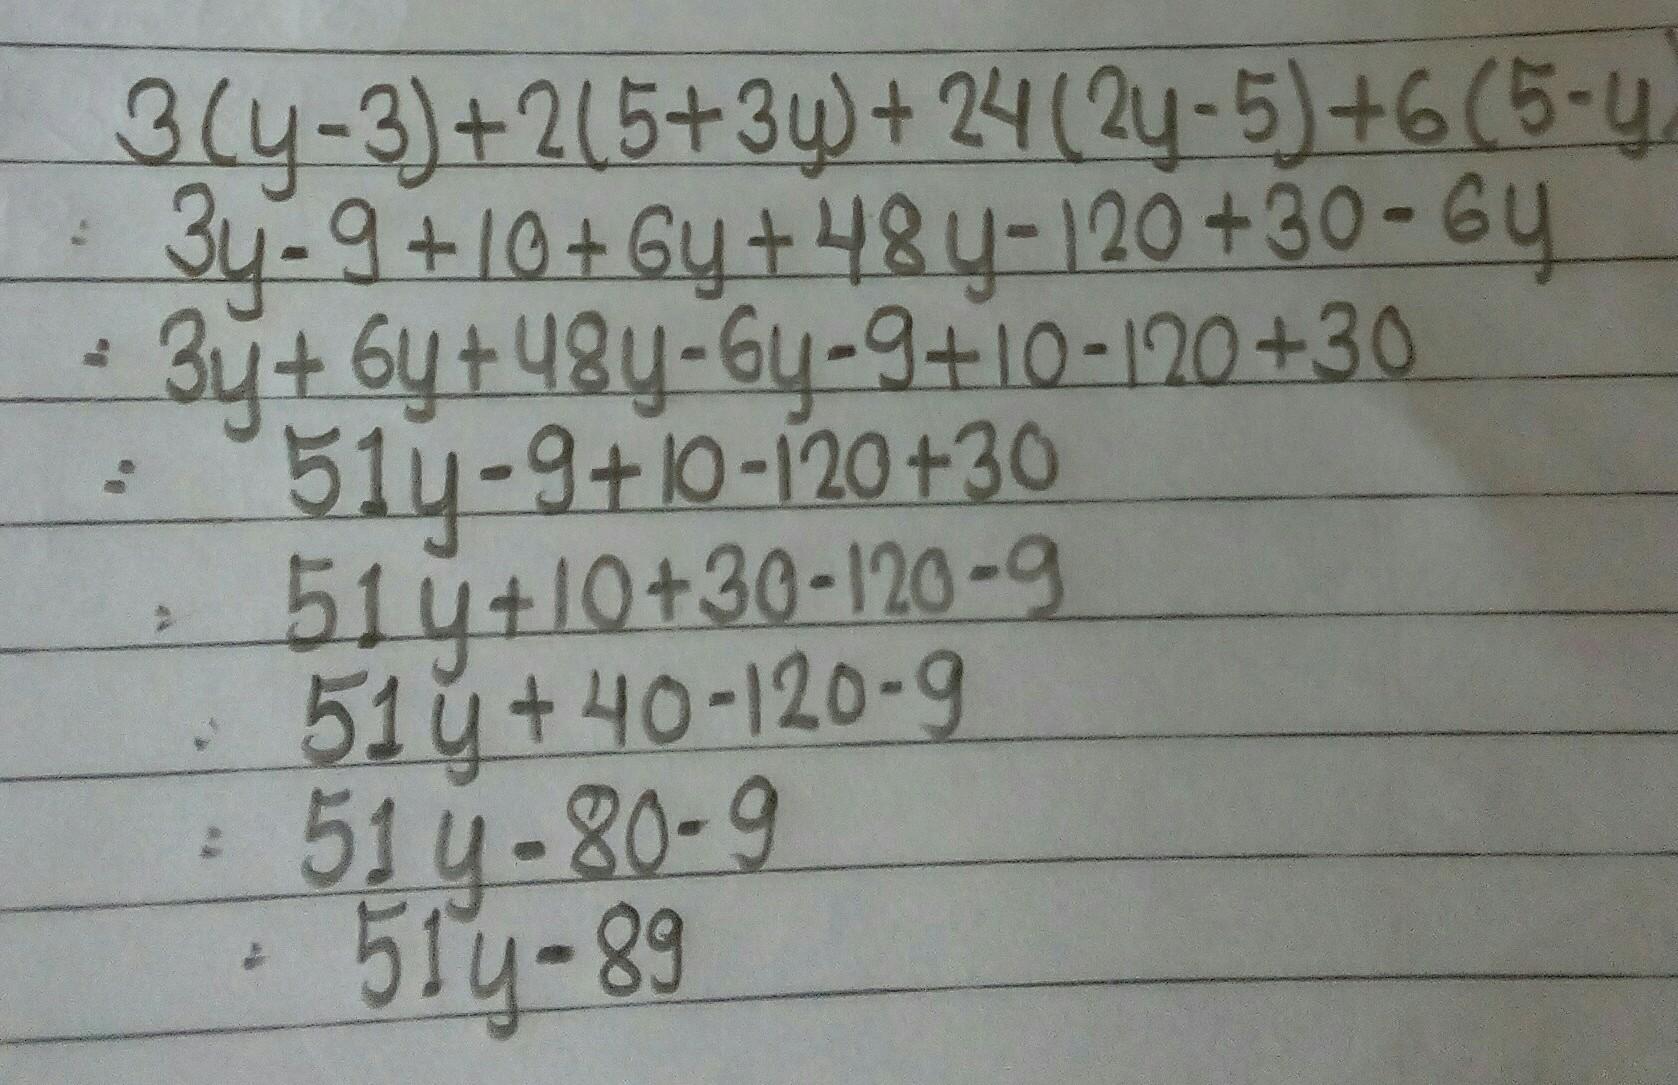 3(y-3)+2(5+3y)+24(2y-5)+6(5-y)
= 3y-9+10+6y+48y-120+30-6y
= 3y+6y+48y-6y-9+10-120+30
= 51y-9+10-120+30
= 51y+10+30-120-9
= 51y+40-120-9
= 51y-80-9
= 51y-89